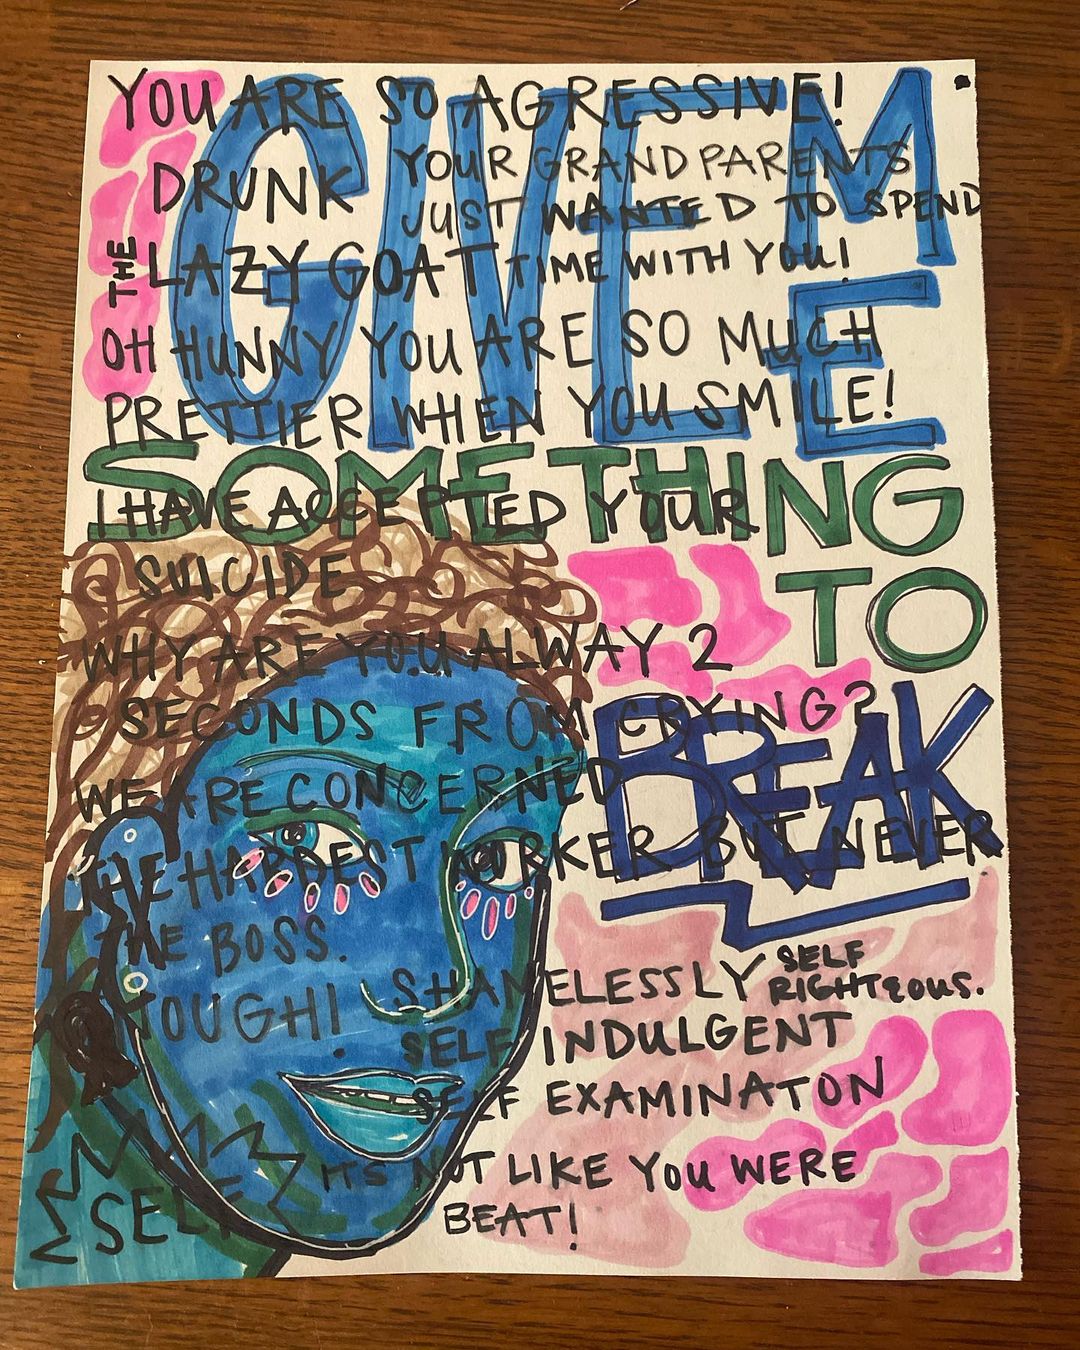 YOU ARE SO AGRESSIVE!
GIVE ME
DRUNK
YOUR GRANDPARENTS
JUST WANTED TO SPEND
TIME WITH YOU!
THE LAZY GOAT
OH HUNNY YOU ARE SO MUCH
PRETTIER WHEN YOU SMILE!
SOMETHING
I HAVE ACCEPTED YOUR
SUICIDE
TO
WHY ARE YOU ALWAY 2
SECONDS FROM CRYING?
BREAK
WE ARE CONCERNED
THE HARDEST WORKER BUT NEVER
THE BOSS.
TOUGH!
SHAMELESSLY SELF RIGHTEOUS.
SELF INDULGENT
SELF EXAMINATON
SELF
ITS NOT LIKE YOU WERE
BEAT!